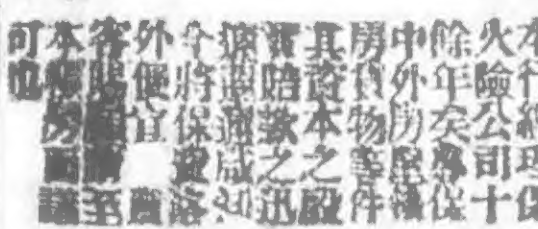 本行經理保
火險公司十
餘年矣專保
中外房屋棧
房貨物等件
其資本之殷
實賠款之迅
速遐邇咸知
今將保費格
外便宜 貴
客賜顧請至
本帳房面議
可也